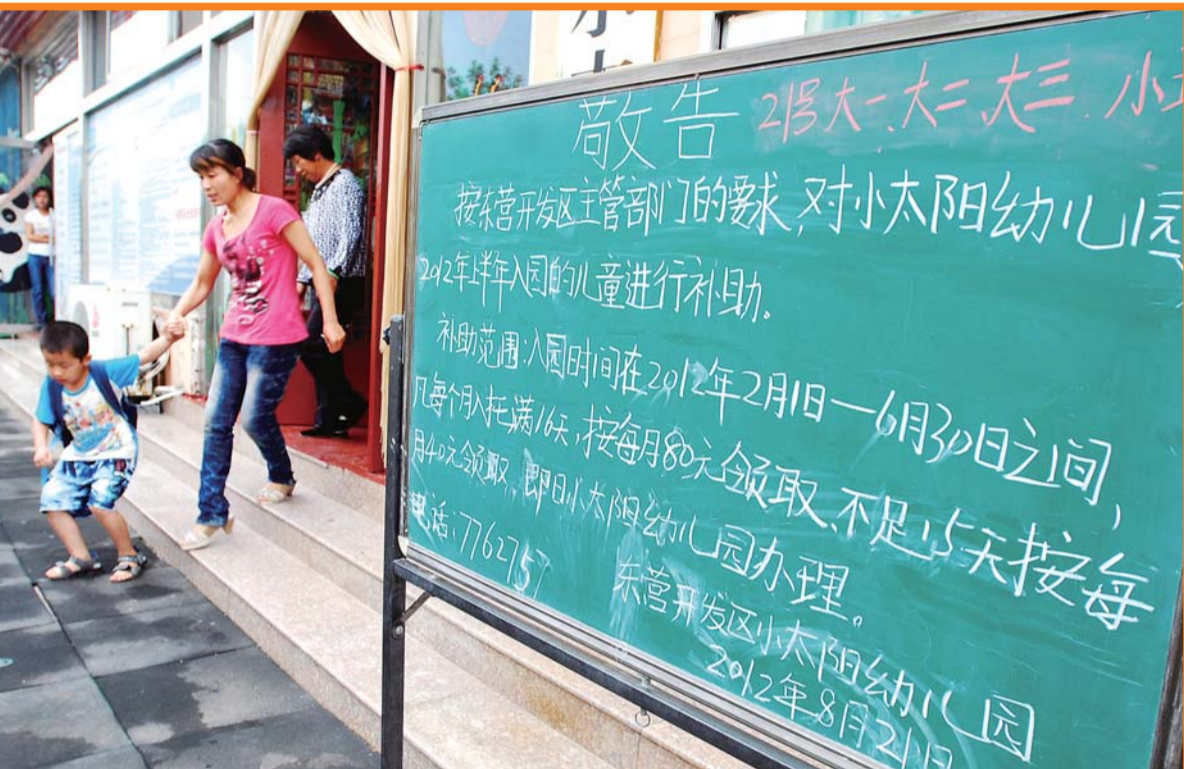 敬告
21号大一、大二 大三、小
按东营开发区主管部门的要求,对小太阳幼儿园
2012年上半年入园的儿童进行补助。
补助范围:入园时间在2012年2月1日—6月30日之间,
凡每个月入托满16天,按每月80元领取、不足15天按每
月40元领取、即日小太阳幼儿园办理。
电话:7762757
东营开发区小太阳幼儿园
2012年8月21日